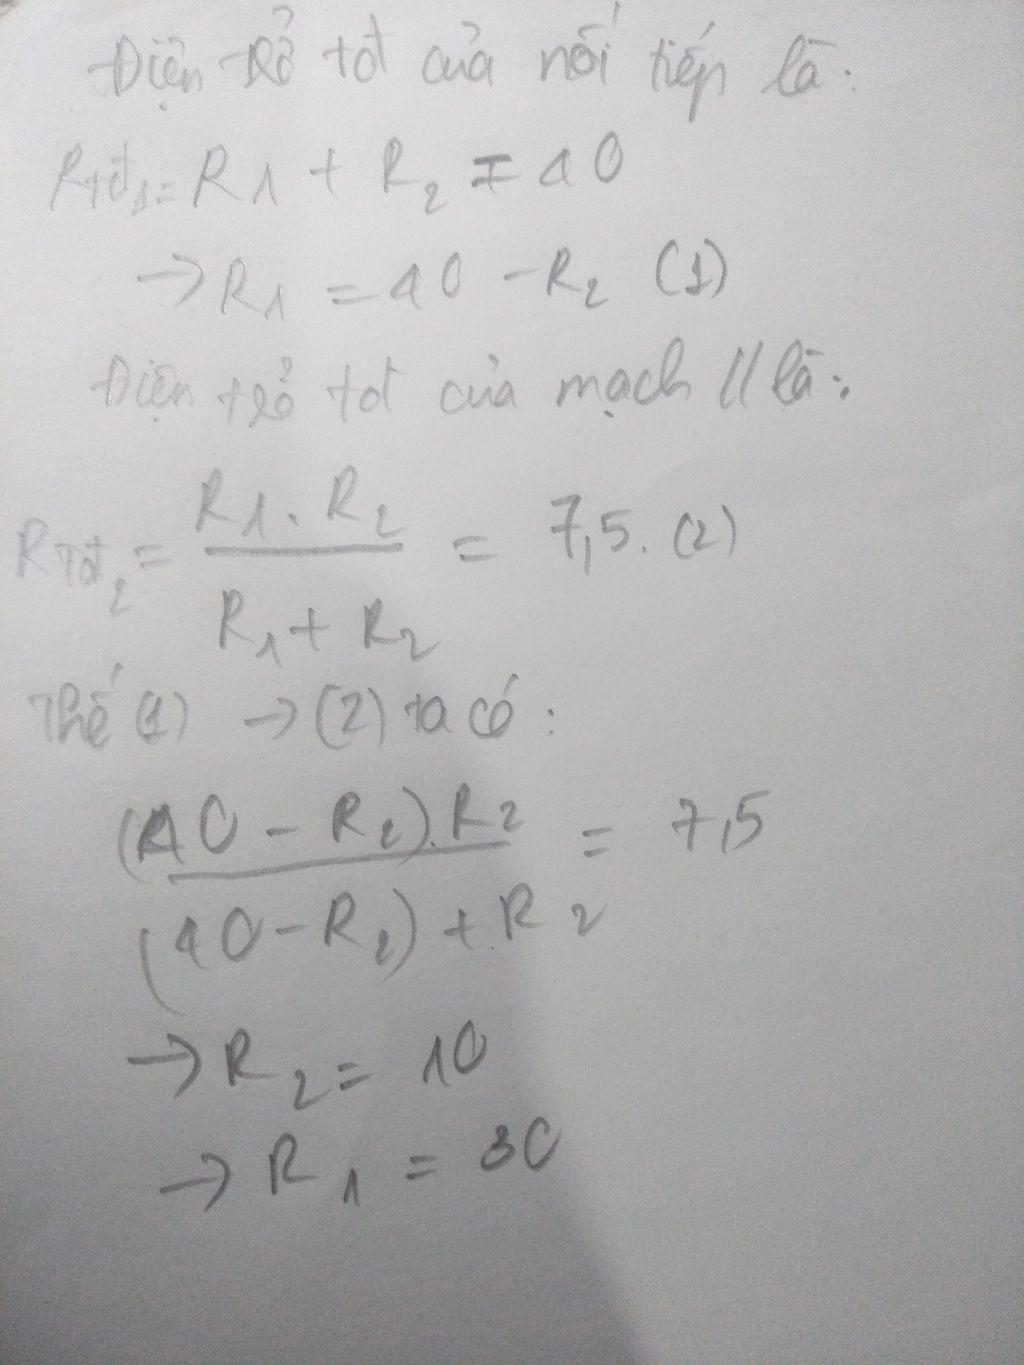 Điện trở tđ của nối tiếp là:
Rtđ1 = R1 + R2 = 40
→ R1 = 40 - R2 (1)
Điện trở tđ của mạch // là:
Rtđ2 = R1 . R2 / R1 + R2 = 7,5. (2)
Thế (1) → (2) ta có:
(40 - R2).R2 / (40 - R2) + R2 = 7,5
→ R2 = 10
→ R1 = 30